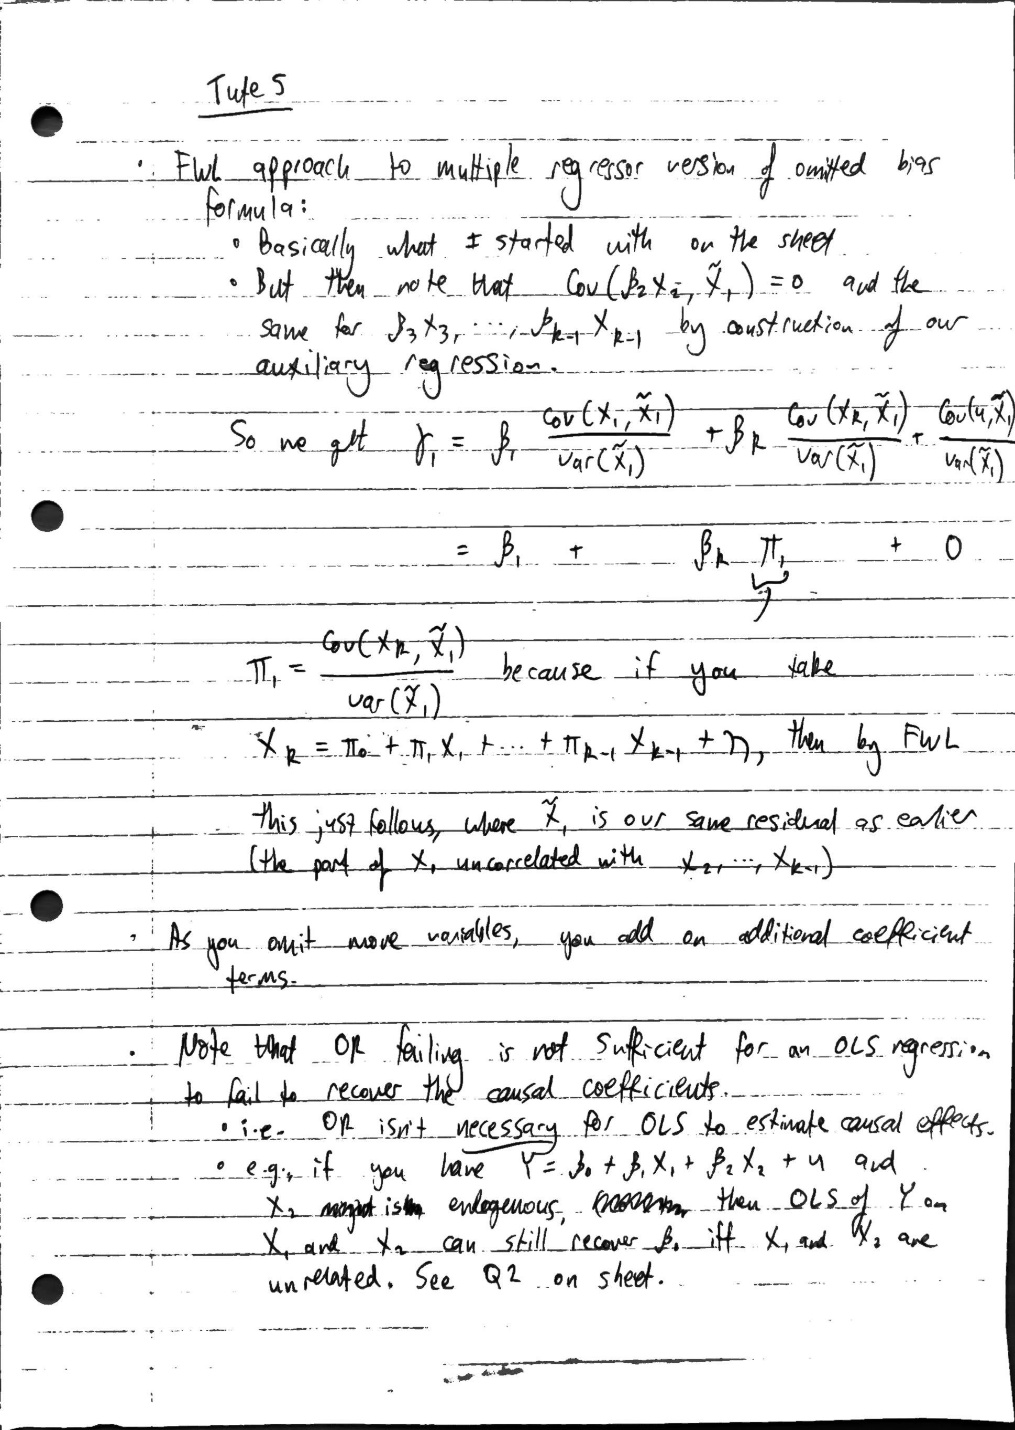 Tute 5
· FWL approach to multiple regressor version of omitted bias
formula:
• Basically what I started with on the sheet
• But then note that Cov(β₂X₂, X̃₁) = 0 and the
same for β₃X₃, ..., βₖ₋₁Xₖ₋₁ by construction of our
auxiliary regression.
So we get γ₁ = β₁ Cov(X₁, X̃₁)/Var(X̃₁) + βₖ Cov(Xₖ, X̃₁)/Var(X̃₁) + Cov(u, X̃₁)/Var(X̃₁)
= β₁ + βₖ π₁ + 0
π₁ = Cov(Xₖ, X̃₁)/Var(X̃₁) because if you take
Xₖ = π₀ + π₁X₁ + ... + πₖ₋₁Xₖ₋₁ + η, then by FWL
this just follows, where X̃₁ is our same residual as earlier
(the part of X₁ uncorrelated with X₂, ..., Xₖ₋₁)
· As you omit more variables, you add on additional coefficient
terms.
· Note that OR failing is not sufficient for an OLS regression
to fail to recover the causal coefficients.
• i.e. OR isn't necessary for OLS to estimate causal effects.
• e.g., if you have Y = β₀ + β₁X₁ + β₂X₂ + u and
X₂ is endogenous, then OLS of Y on
X₁ and X₂ can still recover β₁ iff X₁ and X₂ are
unrelated. See Q2 on sheet.